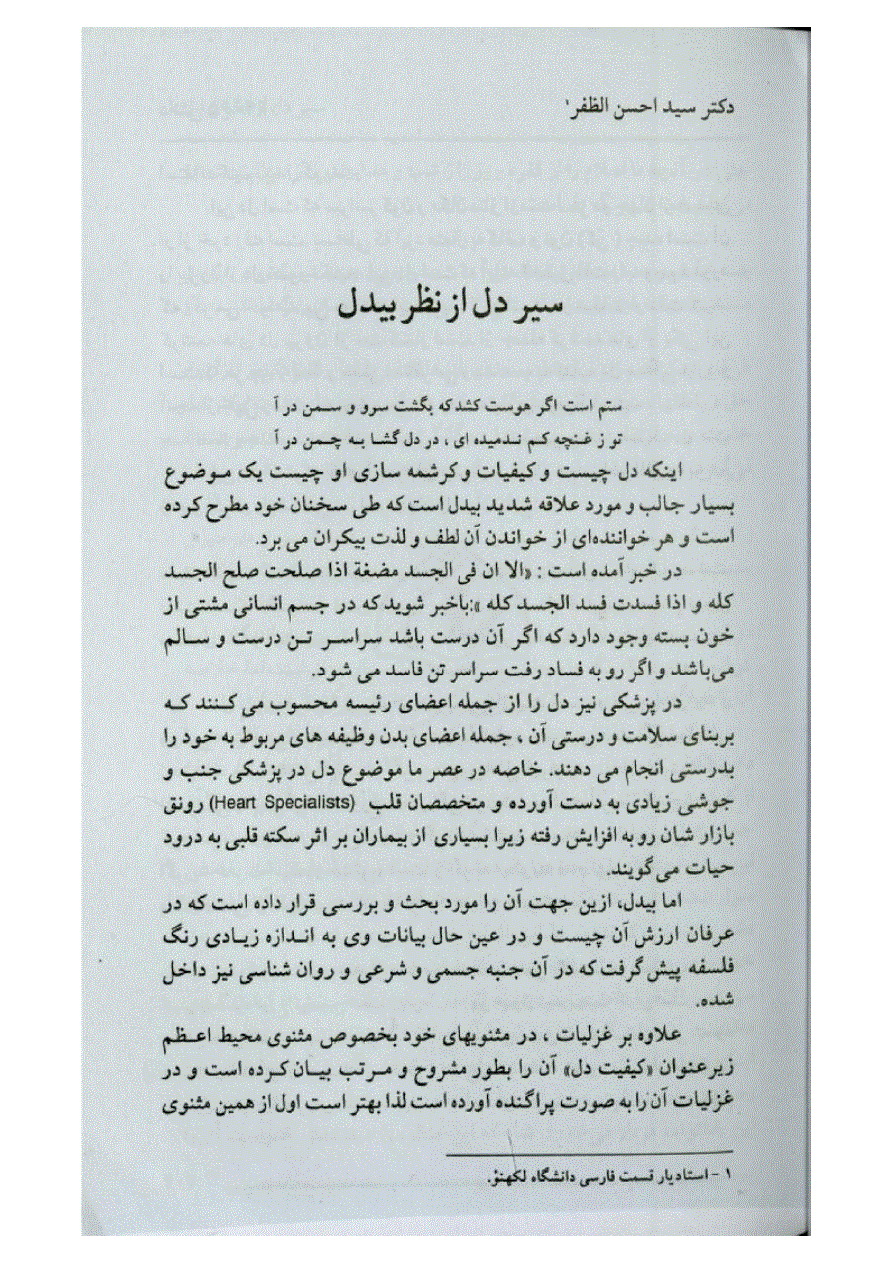 دکتر سید احسن الظفر۱
سیر دل از نظر بیدل
ستم است اگر هوست کشد که بگشت سرو و سمن در آ
تو ز غنچه کم ندمیده ای ، در دل گشا به چمن در آ
اینکه دل چیست و کیفیات و کرشمه سازی او چیست یک موضوع
بسیار جالب و مورد علاقه شدید بیدل است که طی سخنان خود مطرح کرده
است و هر خواننده‌ای از خواندن آن لطف و لذت بیکران می برد.
در خبر آمده است : «الا ان فی الجسد مضغة اذا صلحت صلح الجسد
کله و اذا فسدت فسد الجسد کله »:باخبر شوید که در جسم انسانی مشتی از
خون بسته وجود دارد که اگر آن درست باشد سراسر تن درست و سالم
می‌باشد و اگر رو به فساد رفت سراسر تن فاسد می شود.
در پزشکی نیز دل را از جمله اعضای رئیسه محسوب می کنند که
بربنای سلامت و درستی آن ، جمله اعضای بدن وظیفه های مربوط به خود را
بدرستی انجام می دهند. خاصه در عصر ما موضوع دل در پزشکی جنب و
جوشی زیادی به دست آورده و متخصصان قلب (Heart Specialists) رونق
بازار شان رو به افزایش رفته زیرا بسیاری از بیماران بر اثر سکته قلبی به درود
حیات می گویند.
اما بیدل، ازین جهت آن را مورد بحث و بررسی قرار داده است که در
عرفان ارزش آن چیست و در عین حال بیانات وی به اندازه زیادی رنگ
فلسفه پیش گرفت که در آن جنبه جسمی و شرعی و روان شناسی نیز داخل
شده.
علاوه بر غزلیات ، در مثنویهای خود بخصوص مثنوی محیط اعظم
زیرعنوان «کیفیت دل» آن را بطور مشروح و مرتب بیان کرده است و در
غزلیات آن را به صورت پراگنده آورده است لذا بهتر است اول از همین مثنوی
۱ - استادیار قسمت فارسی دانشگاه لکهنؤ.